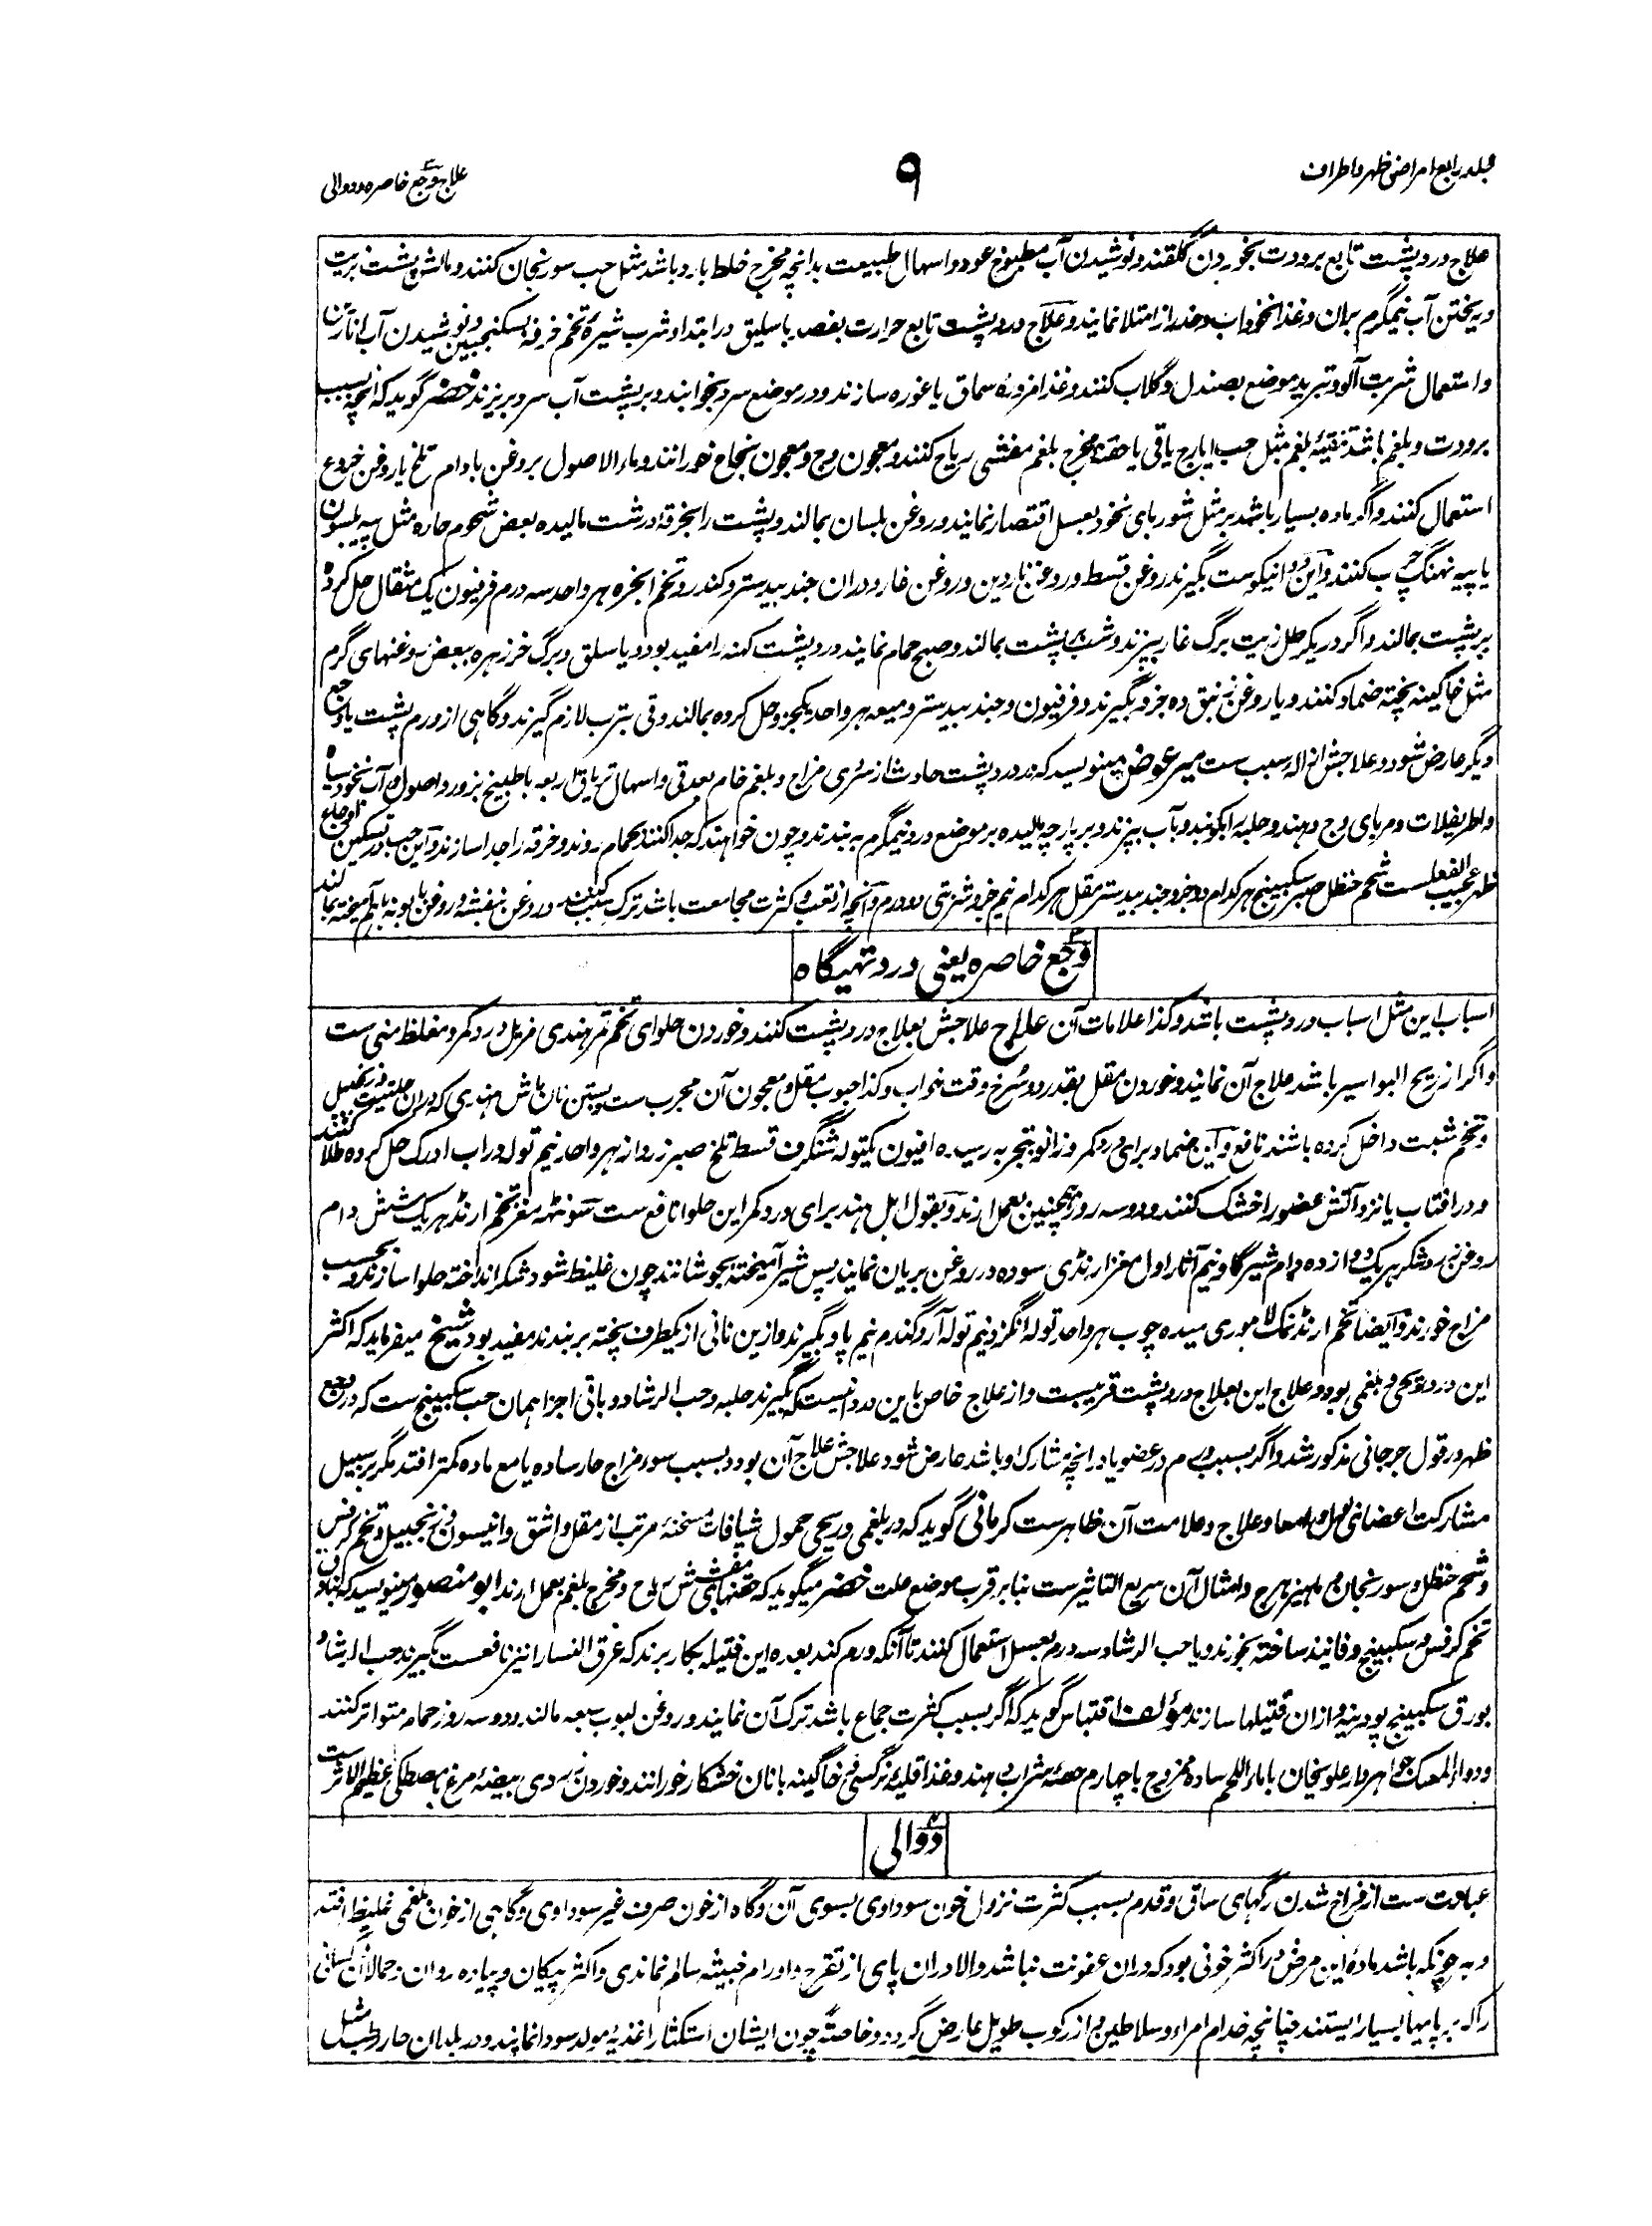 جلد رابع امراض ظهر و اطراف
۹
علاج وجع خاصره و دوالی
علاج درد پشت تابع برودت بخوردن گلقند و نوشیدن آب مطبوخ عود و اسهال طبیعت بدانچه مخرج خلط بارد باشد مثل حب سورنجان کنند و مالش پشت بزیت
و ریختن آب نیمگرم بران و غذا نخوداب و حذر از امتلا نمایند و علاج درد پشت تابع حرارت بفصد باسلیق در ابتدا و شرب شیرهٔ تخم خرفه بسکنجبین و نوشیدن آب انارین
و استعمال شربت آلو و تبرید موضع بصندل و گلاب کنند و غذا مزورهٔ سماق یا غوره سازند و در موضع سرد بخوابند و بر پشت آب سرد بریزند خضر گوید که انچه بسبب
برودت و بلغم باشد تنقیهٔ بلغم مثل حب ایارج یا قی یا حقنهٔ مخرج بلغم مفشی ریاح کنند و معجون وج و معجون نجاح خورانند و ماء الاصول بروغن بادام تلخ یا روغن خروع
استعمال کنند و اگر ماده بسیار باشد بر مثل شوربای نخود بعسل اقتصار نمایند و روغن بلسان بمالند و پشت را بخرقهٔ درشت مالیده بعض شحوم حاره مثل پیه
یا پیه نهنگ چرب کنند و این دوا نیکوست بگیرند روغن قسط و روغن ناردین و روغن غار و دران جندبیدستر و کندر و تخم انجره هر واحد سه درم فرفیون یک مثقال حل کرده
بر پشت بمالند و اگر در یکرطل زیت برگ غار بپزند و شب بر پشت بمالند و صبح حمام نمایند درد پشت کهنه را مفید بود و یا سلق و برگ خرزهره ببعض روغنهای گرم
مثل خاگینه پخته ضماد کنند و یا روغن زنبق ده جزو بگیرند و فرفیون و جندبیدستر و میعه هر واحد یکجزو حل کرده بمالند و قی بترب لازم گیرند و گاهی از ورم پشت یا وجع
دیگر عارض شود و علاجش ازاله سبب ست میر عوض مینویسد که در درد پشت حادث از سردی مزاج و بلغم خام بعد قی و اسهال تریاق اربعه با طبیخ بزور و اصول و آب نخود سیاه
و اطریفلات و مربای وج دهند و حلبه را بکوبند و بآب بپزند و بر پارچه مالیده بر موضع درد نیمگرم به بندند و چون خواهند که جدا کنند بحمام روند و خرقه را جدا سازند و این حب در تسکین اوجاع
ظهر عجیب الفعلست شحم حنظل صبر سکبینج هر کدام دو جزو جندبیدستر مقل هر کدام نیم جزو شربتی دو درم و آنچه از تعب و کثرت مجامعت باشد ترک سبب کنند و روغن بنفشه و روغن بابونه باهم آمیخته بمالند
وجع خاصره یعنی درد تهیگاه
اسباب این مثل اسباب درد پشت باشد و کذا علامات آن علاج علاجش بعلاج درد پشت کنند و خوردن حلوای تخم تمر هندی مزیل درد کمر و مغلظ منی ست
و اگر از ریح البواسیر باشد علاج آن نمایند و خوردن مقل بقدر دو سرخ وقت خواب و کذا حبوب مقل و معجون آن مجرب ست و بستن نان ماش هندی که دران حلتیت و زنجبیل
و تخم شبت داخل کرده باشند نافع و این ضماد برای درد کمر و زانو بتجربه رسیده افیون یکتوله شنگرف قسط تلخ صبر زرد از هر واحد نیم توله در آب ادرک حل کرده طلا کنند
و در آفتاب یا نزد آتش عضو را خشک کنند و دو سه روز همچنین بعمل ارند و بقول اهل هند برای درد کمر این حلوا نافع ست سونٹهه مغز تخم ارنڈ هریک شش دام
روغن زرد شکر هریک دوازده دام شیر گاو نیم آثار اول مغز ارنڈی سوده در روغن بریان نمایند پس شیر آمیخته بجوشانند چون غلیظ شود شکر انداخته حلوا سازند و بحسب
مزاج خورند و ایضا تخم ارنڈ نمک لاهوری میده چوب هر واحد توله انگزه نیم توله آرد گندم نیم پاو بگیرند و ازین نانی از یکطرف پخته بر بندند مفید بود شیخ میفرماید که اکثر
این درد ریحی و بلغمی بود و علاج این بعلاج درد پشت قریبست و از علاج خاص باین درد اینست که بگیرند حلبه و حب الرشاد و باقی اجزا همان حب سکبینج ست که در وجع
ظهر در قول جرجانی مذکور شد و اگر بسبب ورم در عضو یا در انچه مشارک او باشد عارض شود علاجش علاج آن بود و بسبب سوء مزاج حار ساده یا مع ماده کمتر افتد مگر بر سبیل
مشارکت اعضای بول و امعا و علاج و علامت آن ظاهرست کرمانی گوید که در بلغمی و ریحی حمول شیافات مسخنهٔ مرتب از مقل و اشق و انیسون و زنجبیل و تخم کرفس
و شحم حنظل و سورنجان و ماهیزهرج و امثال آن سریع التاثیرست بنابر قرب موضع علت خضر میگوید که حقنهای مفشش ریاح و مخرج بلغم بعمل ارند ابو منصور مینویسد که بنادق
تخم کرفس و سکبینج و فانیذ ساخته بخورند و یا حب الرشاد سه درم بعسل استعمال کنند تا آنکه ورم کند بعده این فتیله بکار برند که عرق النسا را نیز نافعست بگیرند حب الرشاد
بورق سکبینج پودینه و ازان فتیلها سازند مؤلف اقتباس گوید که اگر بسبب کثرت جماع باشد ترک آن نمایند و روغن لبوب سبعه مالند و دو سه روز حمام متواتر کنند
و دواء المسک جواهردار علویخان با ماء اللحم ساده ممزوج با چهارم حصهٔ شراب دهند و غذا قلیهٔ نرگسی و خاگینه با نان خشکار خورانند و خوردن زردی بیضهٔ مرغ بمصطکی عظیم الاثر ست
دوالی
عبارت ست از فراخ شدن رگهای ساق و قدم بسبب کثرت نزول خون سوداوی بسوی آن و گاه از خون صرف غیر سوداوی و گاهی از خون بلغمی غلیظ افتد
و بهر چونکه باشد مادهٔ این مرض در اکثر خونی بود که دران عفونت نباشد والا دران پای از تقرح و اورام خبیثه سالم نماندی و اکثر پیکان و پیاده روان و حمالان کسانی
را که بر پاها بسیار ایستند چنانچه خدام امراء و سلاطین و از رکوب طویل عارض گردد و خاصة چون ایشان استکثار اغذیهٔ مولد سودا نمایند و در بلدان حار رطب مثل